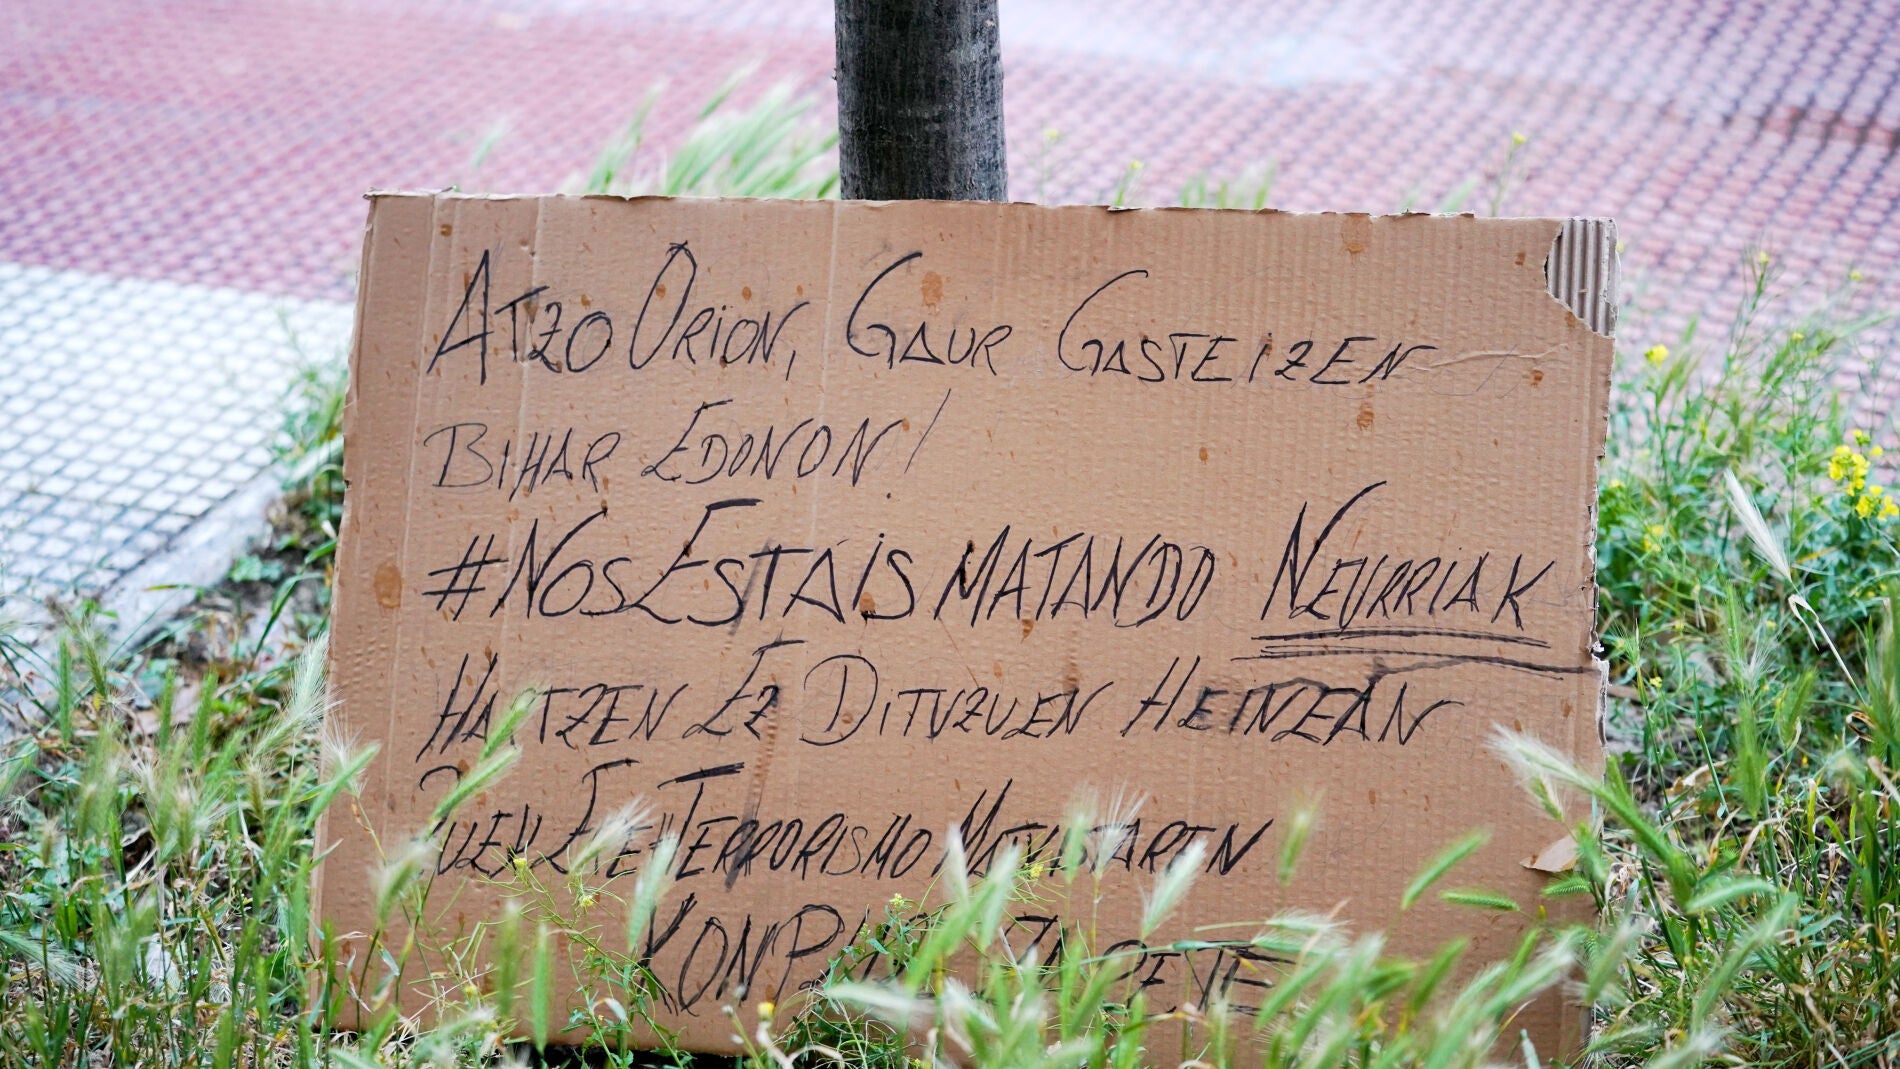 ATZO ORION, GAUR GASTEIZEN
BIHAR EDONON!
#NOSESTÁIS MATANDO NEURRIAK
HARTZEN EZ DITUZUEN HEINEAN
ZUEK ERE TERRORISMO MATXISTAREN
KONPLIZE ZARETE